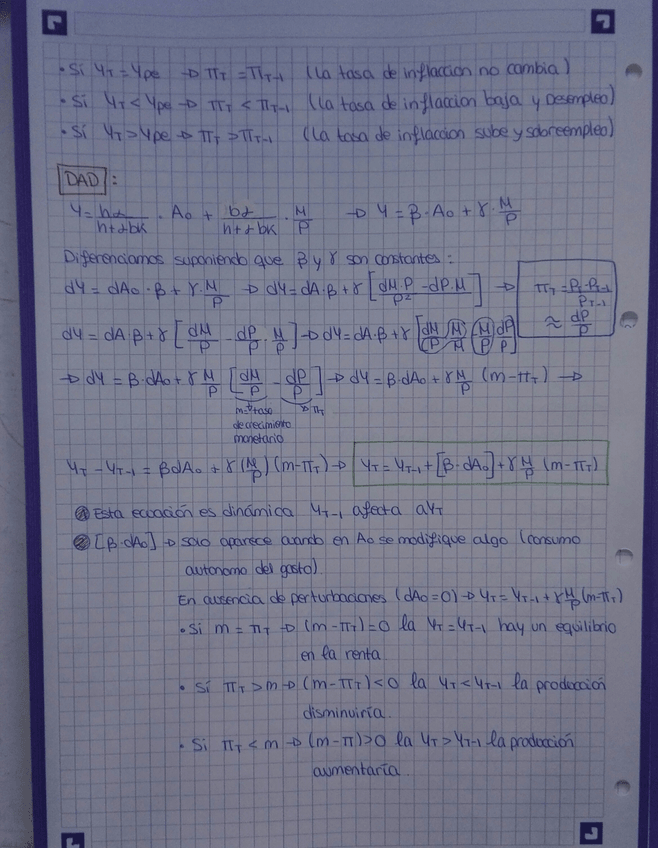 · Si Y_T = Y_pe → π_T = π_T-1 (La tasa de inflaccion no cambia)
· Si Y_T < Y_pe → π_T < π_T-1 (La tasa de inflaccion baja y Desempleo)
· Si Y_T > Y_pe → π_T > π_T-1 (La tasa de inflaccion sube y sobreempleo)
DAD :
Y = hα/h+αbK · A₀ + bα/h+αbK · M/P → Y = β·A₀ + γ·M/P
Diferenciamos suponiendo que β y γ son constantes :
dY = dA₀·β + γ·M/P → dY = dA·β + γ [dM·P - dP·M / P²] →
π_T = P_t - P_t-1 / P_T-1
≈ dP/P
dY = dA·β + γ [dM/P - dP/P · M/P] → dY = dA·β + γ [dM/P M/M M/P dP/P]
→ dY = β·dA₀ + γ M/P [dM/P - dP/P] → dY = β·dA₀ + γ M/P (m-π_T) →
m= tasa → π_T
de crecimiento
monetario
Y_T - Y_T-1 = β dA₀ + γ (M/P) (m-π_T) → Y_T = Y_T-1 + [β·dA₀] + γ M/P (m-π_T)
① Esta ecuación es dinámica Y_T-1 afecta a Y_T
② [β·dA₀] → solo aparece cuando en A₀ se modifique algo (consumo
autonomo del gasto).
En ausencia de perturbaciones (dA₀=0) → Y_T = Y_T-1 + γ M/P (m-π_T)
· Si m = π_T → (m-π_T)=0 la Y_T = Y_T-1 hay un equilibrio
en la renta
· Si π_T > m → (m-π_T)<0 la Y_T < Y_T-1 la producción
disminuiría.
· Si π_T < m → (m-π)>0 la Y_T > Y_T-1 la producción
aumentaría.